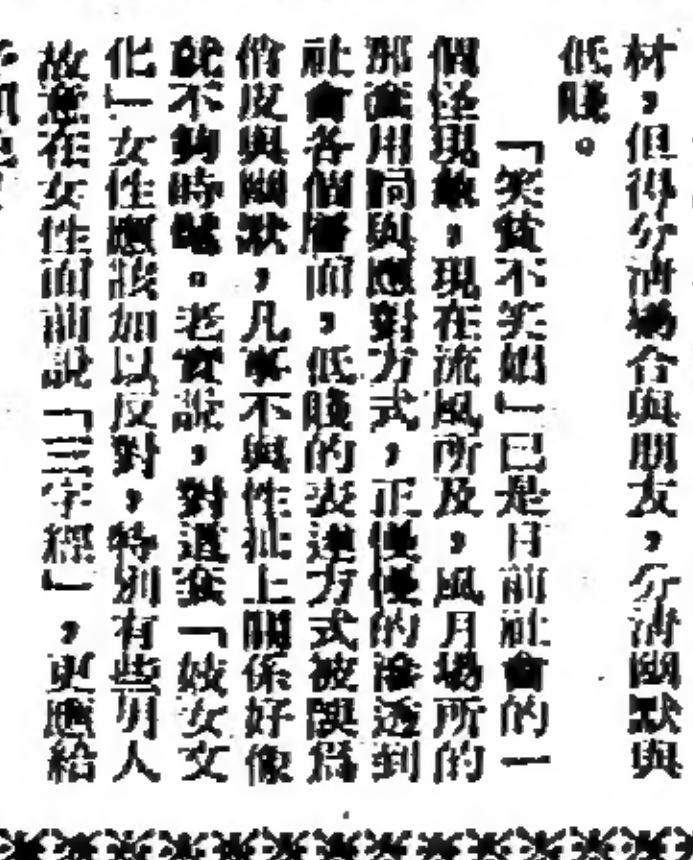 材，但得分清場合與朋友，分清幽默與
低賤。
「笑貧不笑娼」已是目前社會的一
個怪現象，現在流風所及，風月場所的
那套用詞與應對方式，正慢慢的滲透到
社會各個層面，低賤的表達方式被誤爲
俏皮與幽默，凡事不與性扯上關係好像
就不夠時髦。老實說，對這套「妓女文
化」女性應該加以反對，特別有些男人
故意在女性面前說「三字經」，更應給